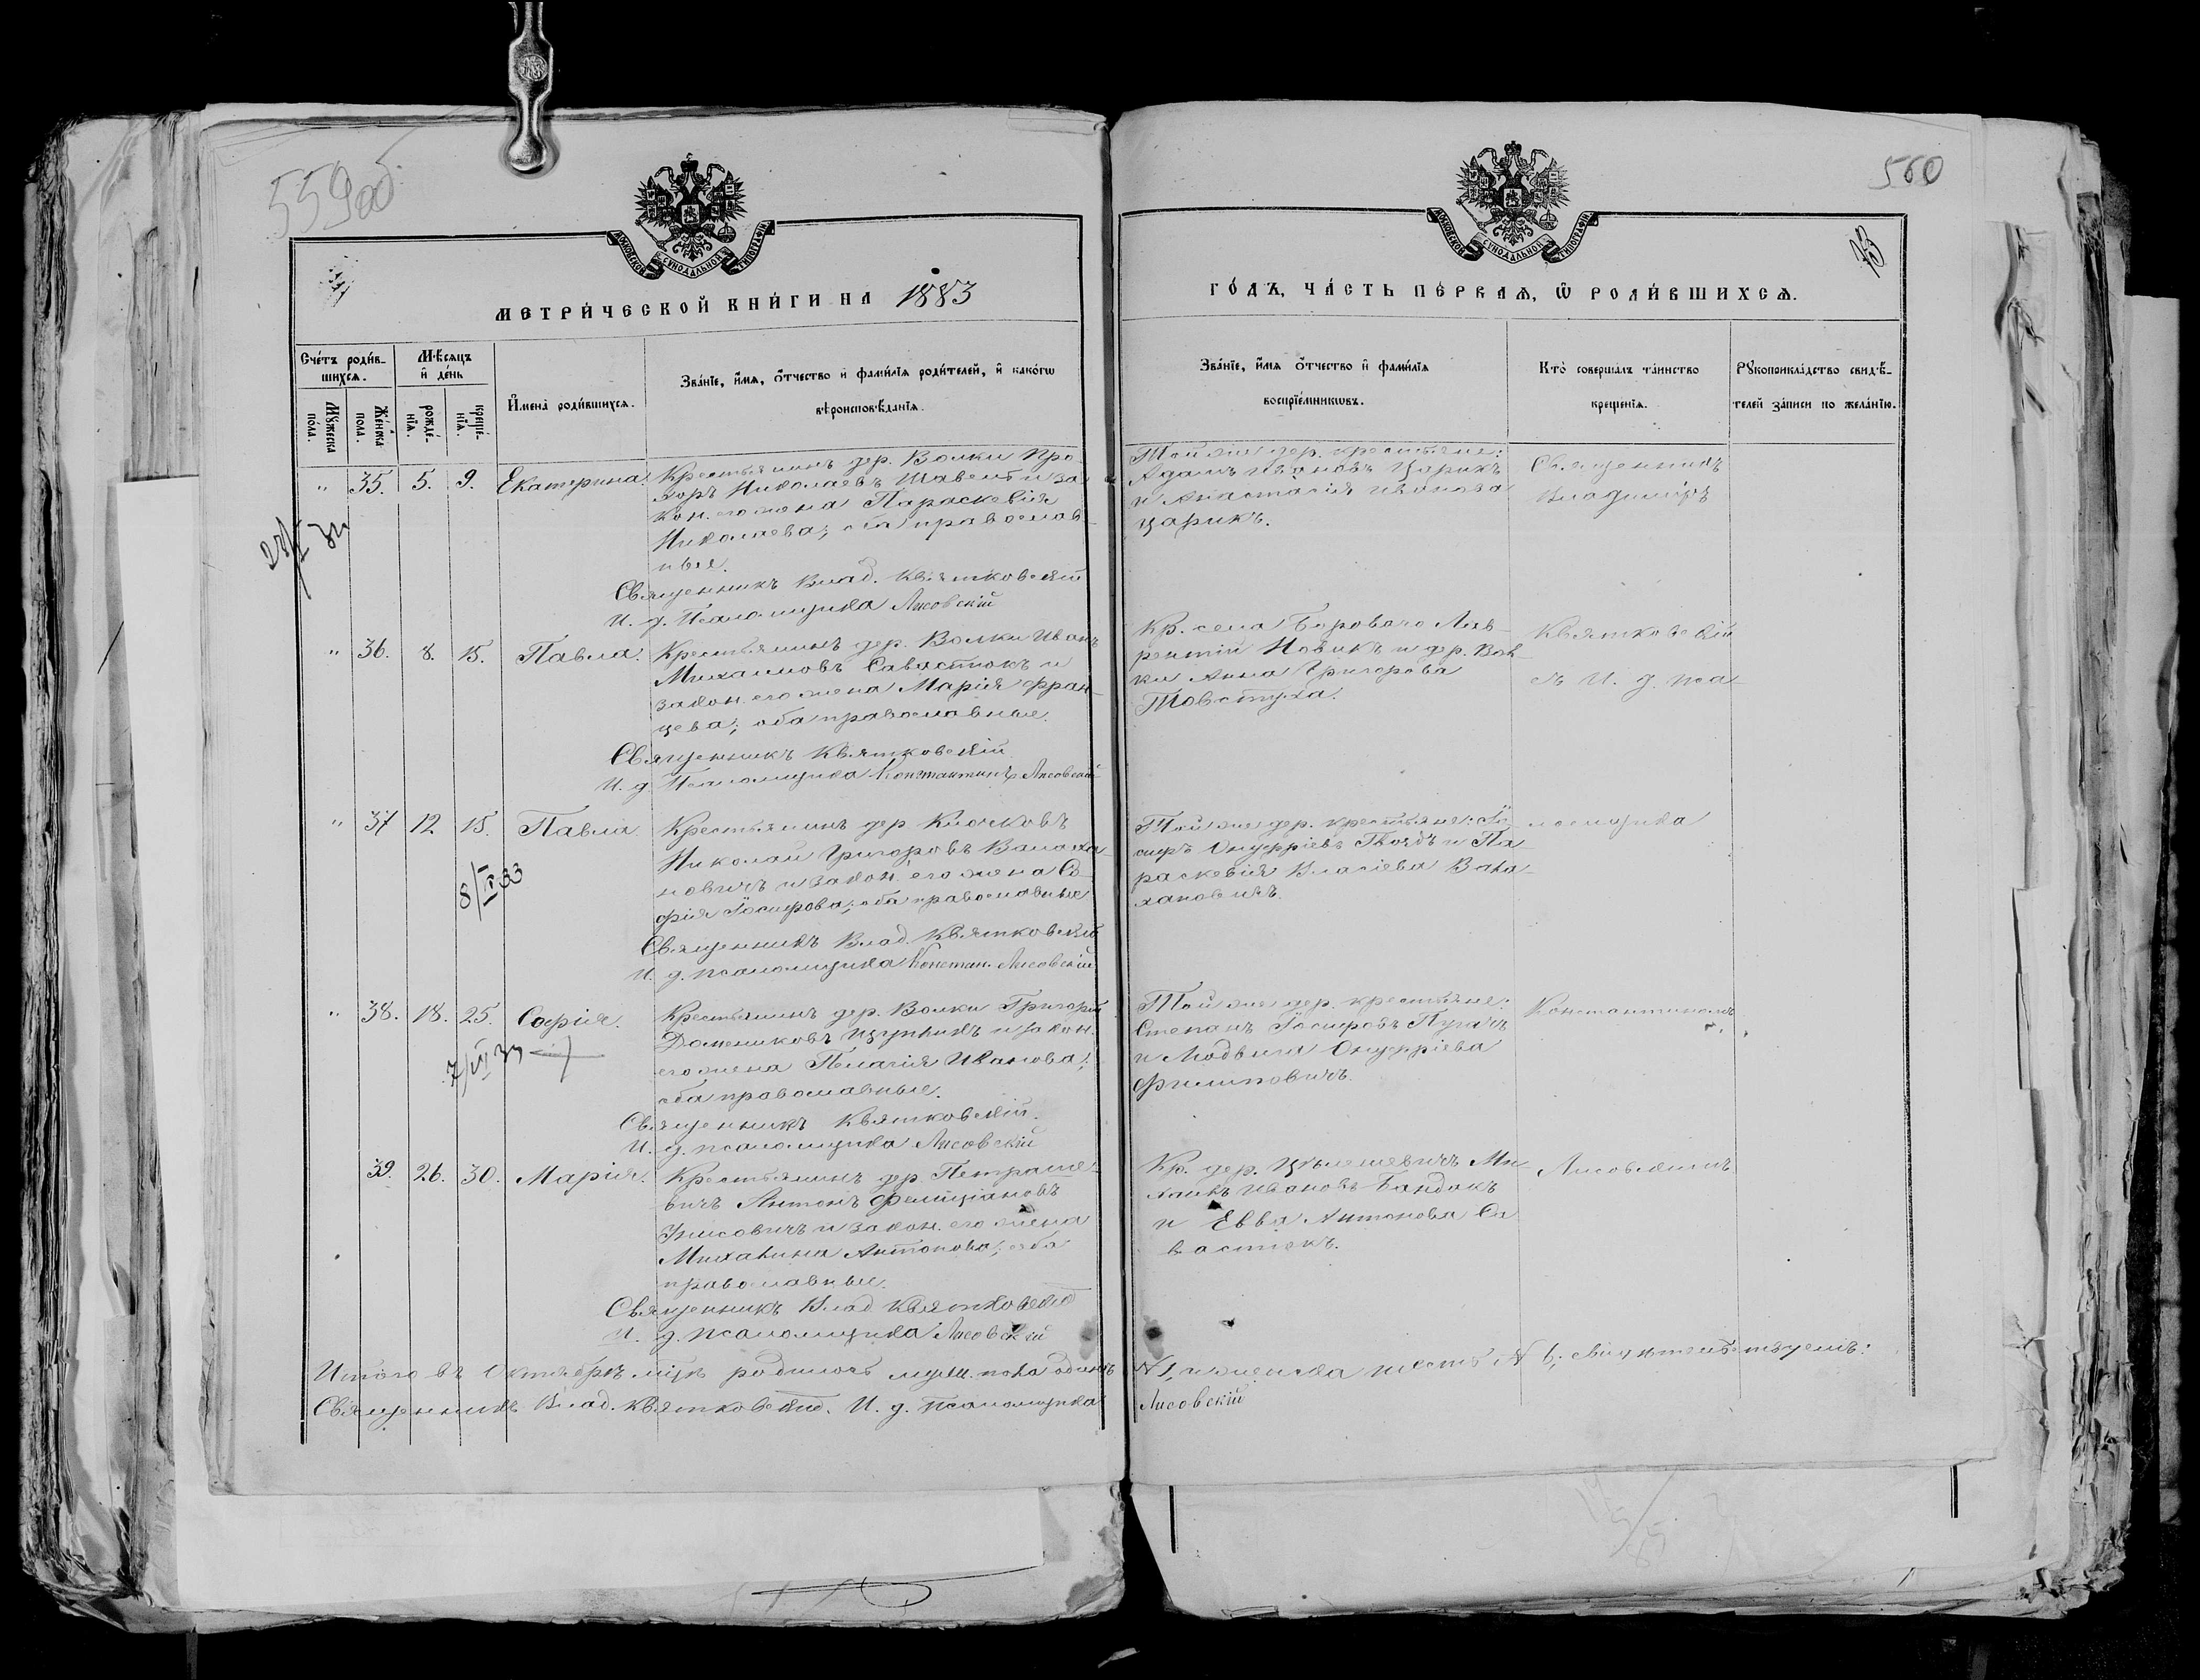 559 об.
560
МОСКОВСКОЙ СѴНОДАЛЬНОЙ ТИПОГРАФІИ
МОСКОВСКОЙ СѴНОДАЛЬНОЙ ТИПОГРАФІИ
МЕТРИ́ЧЕСКОЙ КНИ́ГИ НА 1883
ГО́ДЪ, ЧА́СТЬ ПЕ́РВАЯ, Ѡ РОДИ́ВШИХСЯ.
Сче́тъ роди́в-
шихся.
Мѣ́сяцъ
и де́нь
Мꙋ́жеска по́ла.
Же́нска по́ла.
рожде́-нїя.
креще́-нїя.
Имена̀ роди́вшихся.
Зва́нїе, и́мя, о́тчество и фами́лїя роди́телей, и како́гѡ
вѣроисповѣ́данїя.
Зва́нїе, и́мя о́тчество и фами́лїя
воспрїе́мникѡвъ.
Кто̀ соверша́лъ та́инство
креще́нїя.
Рꙋкоприкла́дство свидѣ́-
телей за́писи по жела́нїю.
" 35. 5. 9. Екатерина.
Крестьянинъ дер. Волки Про
хоръ Николаевъ и за
кон. его жена Параскевія
Николаева; оба православ-
ные.
Священникъ Влад. Квятковскій
И. д. Псаломщика Лисовскій
Той же дер. крестьяне:
Адамъ Ивановъ Царикъ
и Анастасія Иванова
Царикъ.
Священникъ
Владиміръ
" 36. 8. 15. Павла.
Крестьянинъ дер. Волки Иванъ
Михаиловъ Савастюкъ и
закон. его жена Марія Фран-
цева; оба православные.
Священникъ Квятковскій
И. д. Псаломщика Константинъ Лисовскій
Кр. села Борового Лав-
рентій Новикъ и дер. Вол-
ки Анна Григорова
Товстуха.
Квятковскій
съ И. д. пса-
" 37 12 15. Павла.
Крестьянинъ дер
Николай Григоровъ
новичъ и закон. его жена Со-
фія Іосифова; оба православные
Священникъ Влад. Квятковскій
И. д. псаломщика Констан. Лисовскій
8/I 33
Той же дер. крестьяне: Іо-
сифъ Онуфріевъ и Па-
раскевія Власіева
ломщика
" 38. 18. 25. Софія.
Крестьянинъ дер. Волки Григорій
Домениковъ и закон.
его жена Пелагія Иванова;
оба православные.
Священникъ Квятковскій.
И. д. псаломщика Лисовскій
Той же дер. крестьяне:
Степанъ Іосифовъ Пугачъ
и Людвига Онуфріева
Филиповичъ.
Константиномъ
39. 26. 30. Марія.
Крестьянинъ дер. Петраше-
вичъ Антонъ Фелиціановъ
и закон. его жена
Михалина Антонова; оба
православные.
Священникъ Влад Квятковскій
И. д. псаломщика Лисовскій
Кр. дер. Ми-
хаилъ Ивановъ Бандюкъ
и Евва Антонова Са
вастюкъ.
Лисовскимъ
Итого въ Октябрѣ мцѣ родилось муж. пола одинъ № 1, женска шесть № 6; свидѣтельствуемъ:
Священникъ Влад. Квятковскій. И. д. Псаломщика Лисовскій